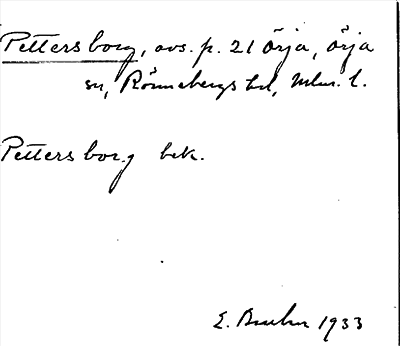 Pettersborg, avs. p. 21 Örja, Örja
sn, Rönnebergs hd, Mlm. l.
Pettersborg bek.
E. 1933